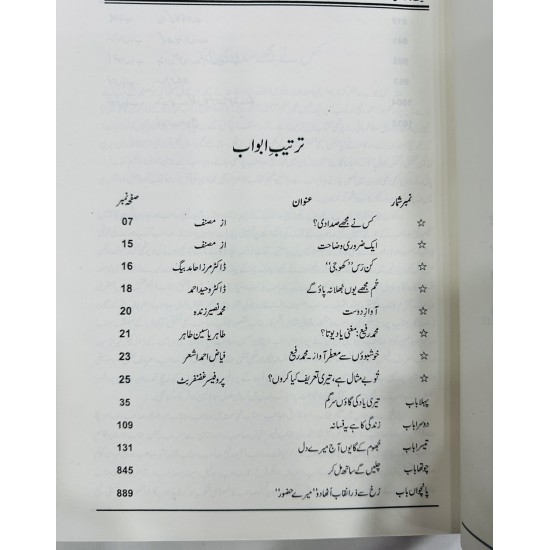 ترتیبِ ابواب
نمبر شمار عنوان صفحہ نمبر
☆ کس نے مجھے صدا دی؟ از مصنف 07
☆ ایک ضروری وضاحت از مصنف 15
☆ کن رَس ”کھوجی“ ڈاکٹر مرزا حامد بیگ 16
☆ تم مجھے یوں بھلا نہ پاؤ گے ڈاکٹر وحید احمد 18
☆ آوازِ دوست محمد نصیر زندہ 20
☆ محمد رفیع: مغنی یا دیوتا؟ طاہر یاسین طاہر 21
☆ خوشبوؤں سے معطر آواز۔ محمد رفیع فیاض احمد اشعر 23
☆ تُو بے مثال ہے، تیری تعریف کیا کروں؟ پروفیسر غضنفر بٹ 25
پہلا باب تیری یاد کی گاؤں سرگم 35
دوسرا باب زندگی کا ہے یہ فسانہ 109
تیسرا باب جُھوم کے گا یوں آج میرے دل 131
چوتھا باب چلیں گے ساتھ مل کر 845
پانچواں باب رُخ سے ذرا نقاب اُٹھا دو ”میرے حضور“ 889